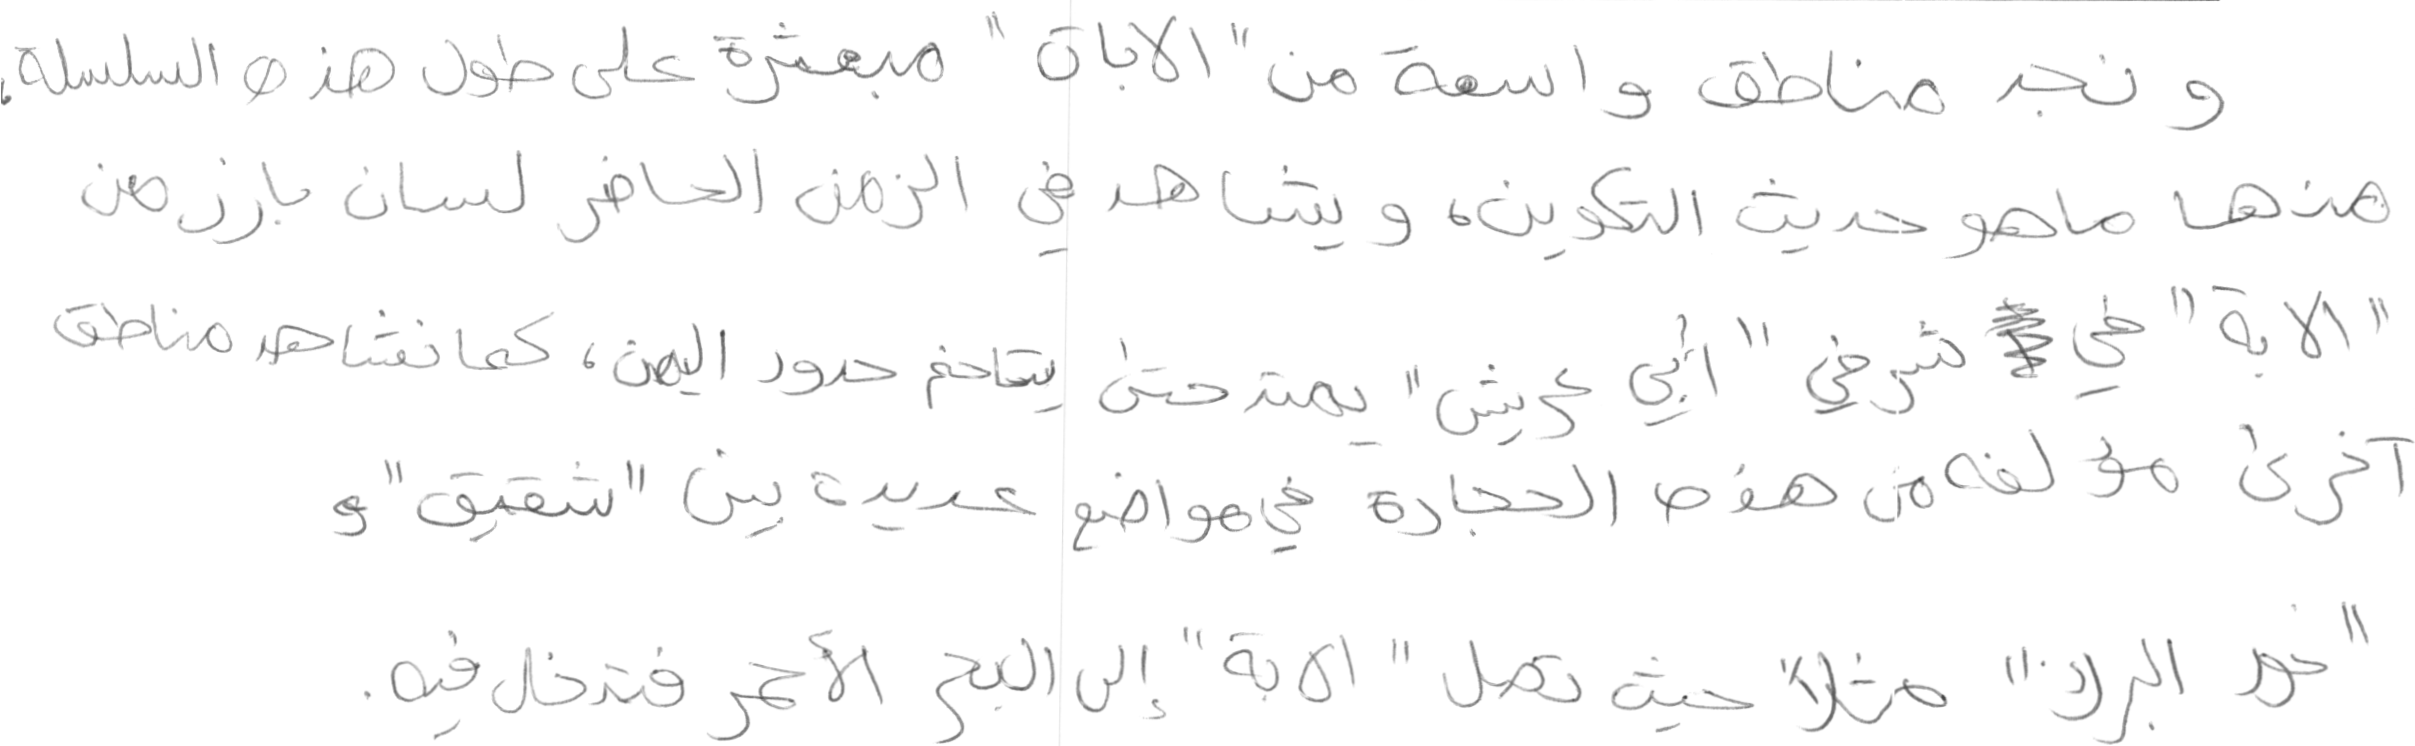 ونجد مناطق واسعة من "الابات" مبعثرة على طول هذه السلسلة،
منها ماهو حديث التكوين، ويشاهد في الزمن الحاضر لسان بارز من
"الابة" في شرقي "أبي عريش" يمتد حتى يتاخم حدود اليمن، كما نشاهد مناطق
آخرى مؤلفه من هذه الحجارة في مواضع عديدة بين "شقيق" و
"خور البرك" مثلا حيث تصل "الابة" إلى البحر الأحمر فتدخل فيه.